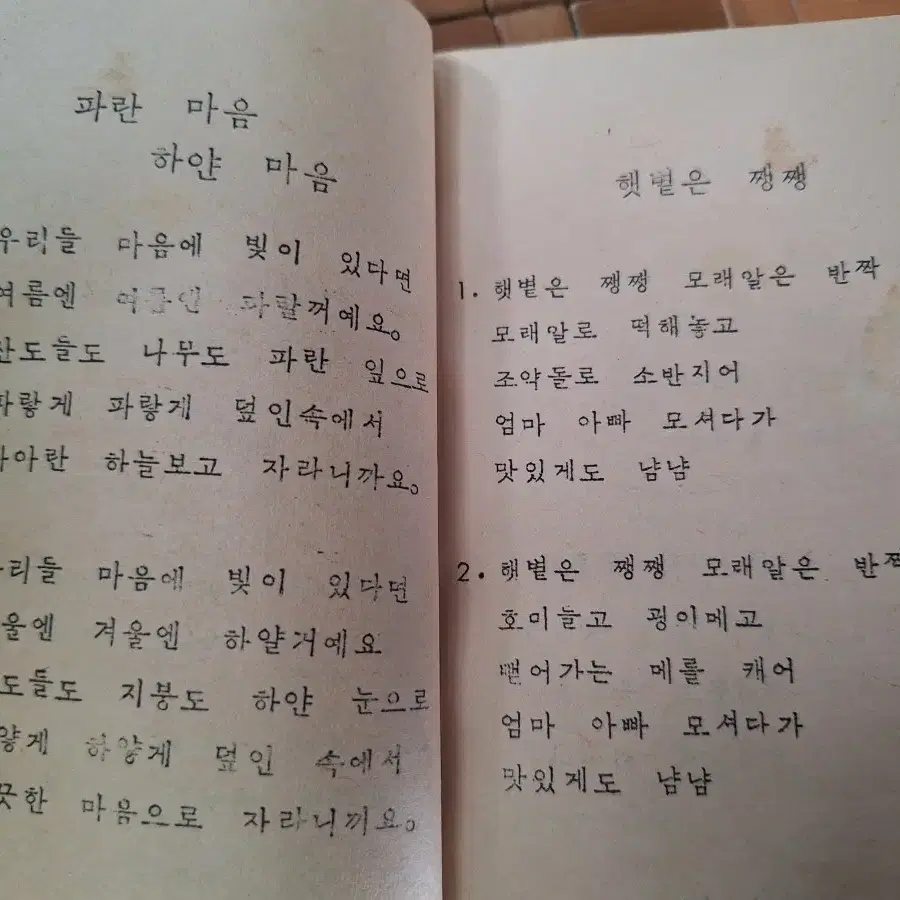 파란 마음
하얀 마음
우리들 마음에 빛이 있다면
여름엔 여름엔 파랄꺼예요。
산도들도 나무도 파란 잎으로
파랗게 파랗게 덮인속에서
파아란 하늘보고 자라니까요。
리들 마음에 빛이 있다면
울엔 겨울엔 하얄거예요
도들도 지붕도 하얀 눈으로
얗게 하얗게 덮인 속에서
끗한 마음으로 자라니까요。
햇볕은 쨍쨍
1. 햇볕은 쨍쨍 모래알은 반짝
모래알로 떡해놓고
조약돌로 소반지어
엄마 아빠 모셔다가
맛있게도 냠냠
2. 햇볕은 쨍쨍 모래알은 반짝
호미들고 괭이메고
뻗어가는 메를 캐어
엄마 아빠 모셔다가
맛있게도 냠냠